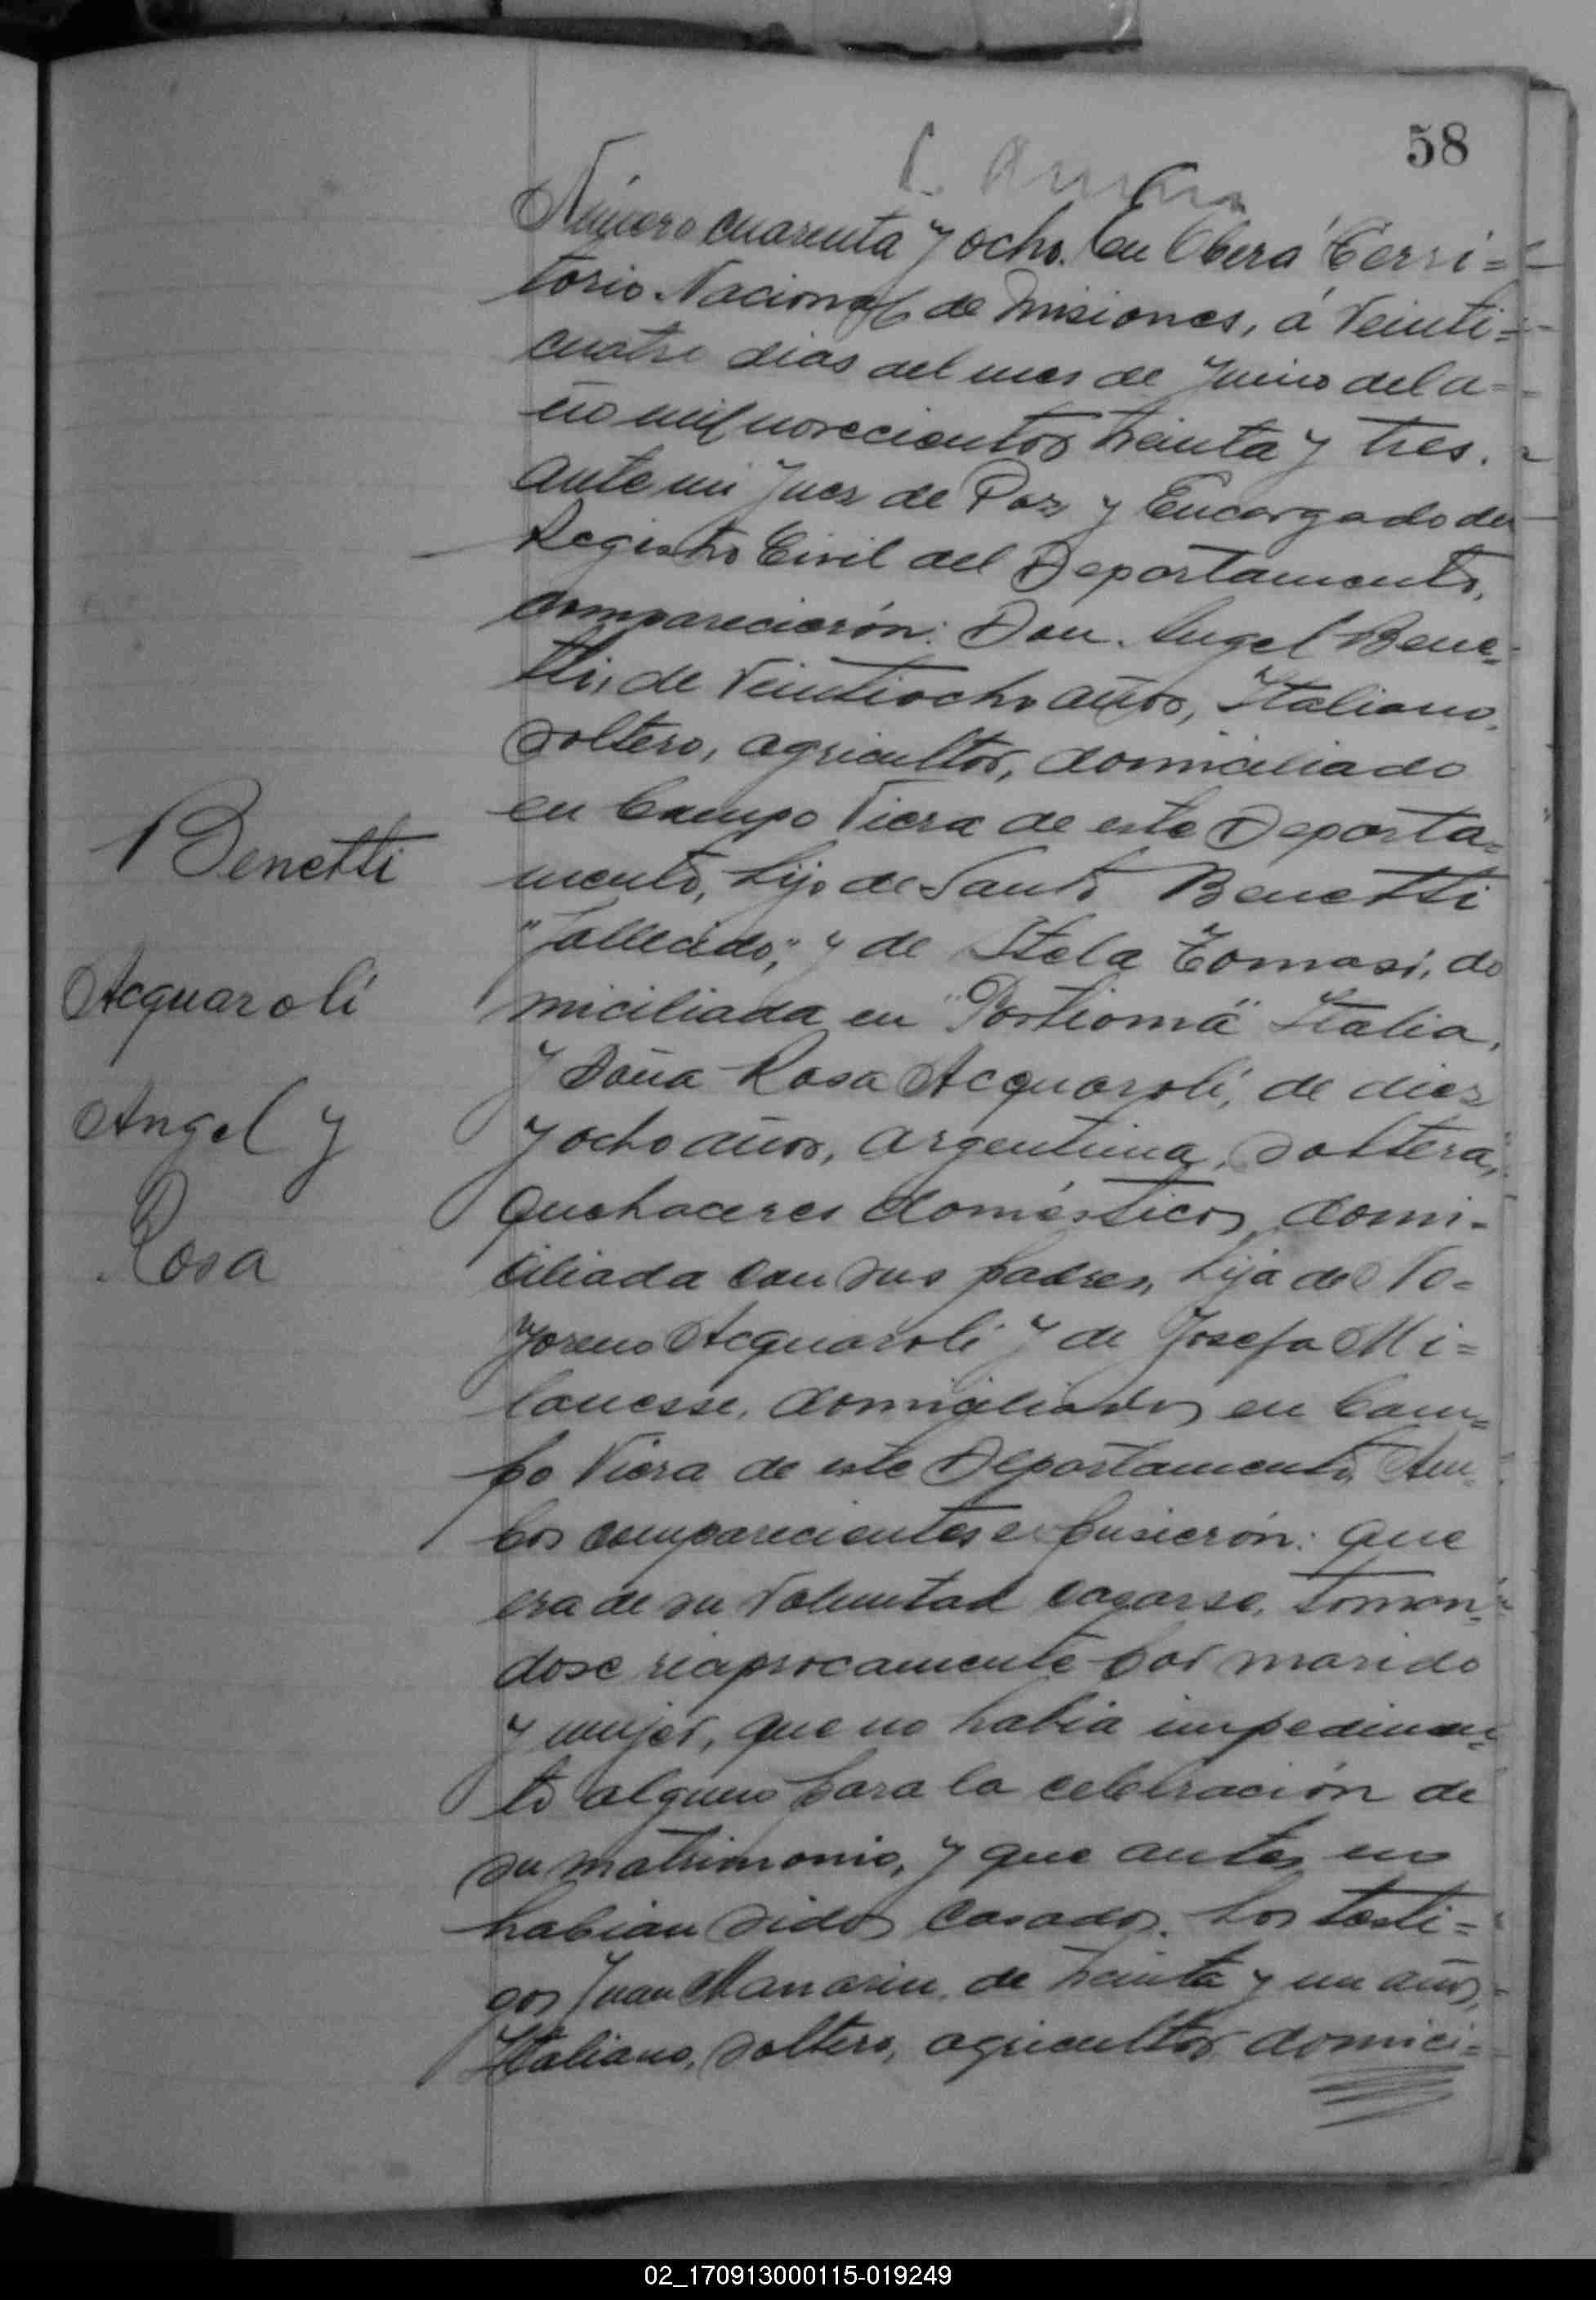 58
Número cuarenta y ocho. En Oberá Terri=
torio Nacional de Misiones, á veinti=
cuatro dias del mes de Junio del a=
ño mil novecientos treinta y tres.
ante mi Juez de Paz y Encargado del
Registro Civil del Departamento,
comparecierón: Don Angel Bene=
tti, de veintiocho años, Italiano,
soltero, agricultor, domiciliado
en Campo Viera de este Departa=
mento, hijo de Santo Benetti
"fallecido," y de Itela Tomasi, do
miciliada en "Portiomá" Italia,
y Doña Rosa Acquaroli, de diez
y ocho años, argentina, soltera,
quehaceres domésticos, domi-
ciliada con sus padres, hija de No=
yoreno Acquaroli y de Josefa Mi=
lanesse, domiciliados en Cam=
po Viera de este Departamento, Am
bos comparecientes expusierón: que
era de su voluntad casarse, toman=
dose reciprocamente por marido
y mujer, que no habia impedimen=
to alguno para la celebración de
su matrimonio, y que antes no
habian sidos casados. Los testi=
gos Juan Manarin, de treinta y un años,
Italiano, soltero, agricultor domici=
Benetti
Acquaroli
Angel y
Rosa
02_170913000115-019249